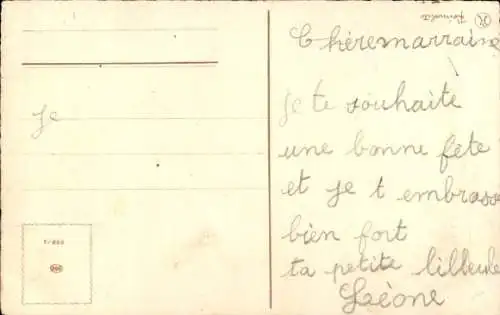 Chère marraine
je te souhaite
une bonne fête
et je t embrasse
bien fort
ta petite lilleule
Léone
Je